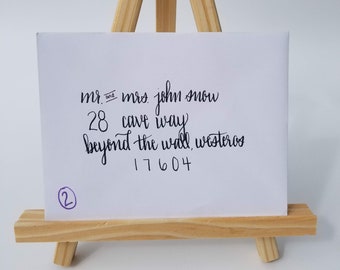 mr. and mrs. john snow
28 cave way
beyond the wall, westeros
17604
2